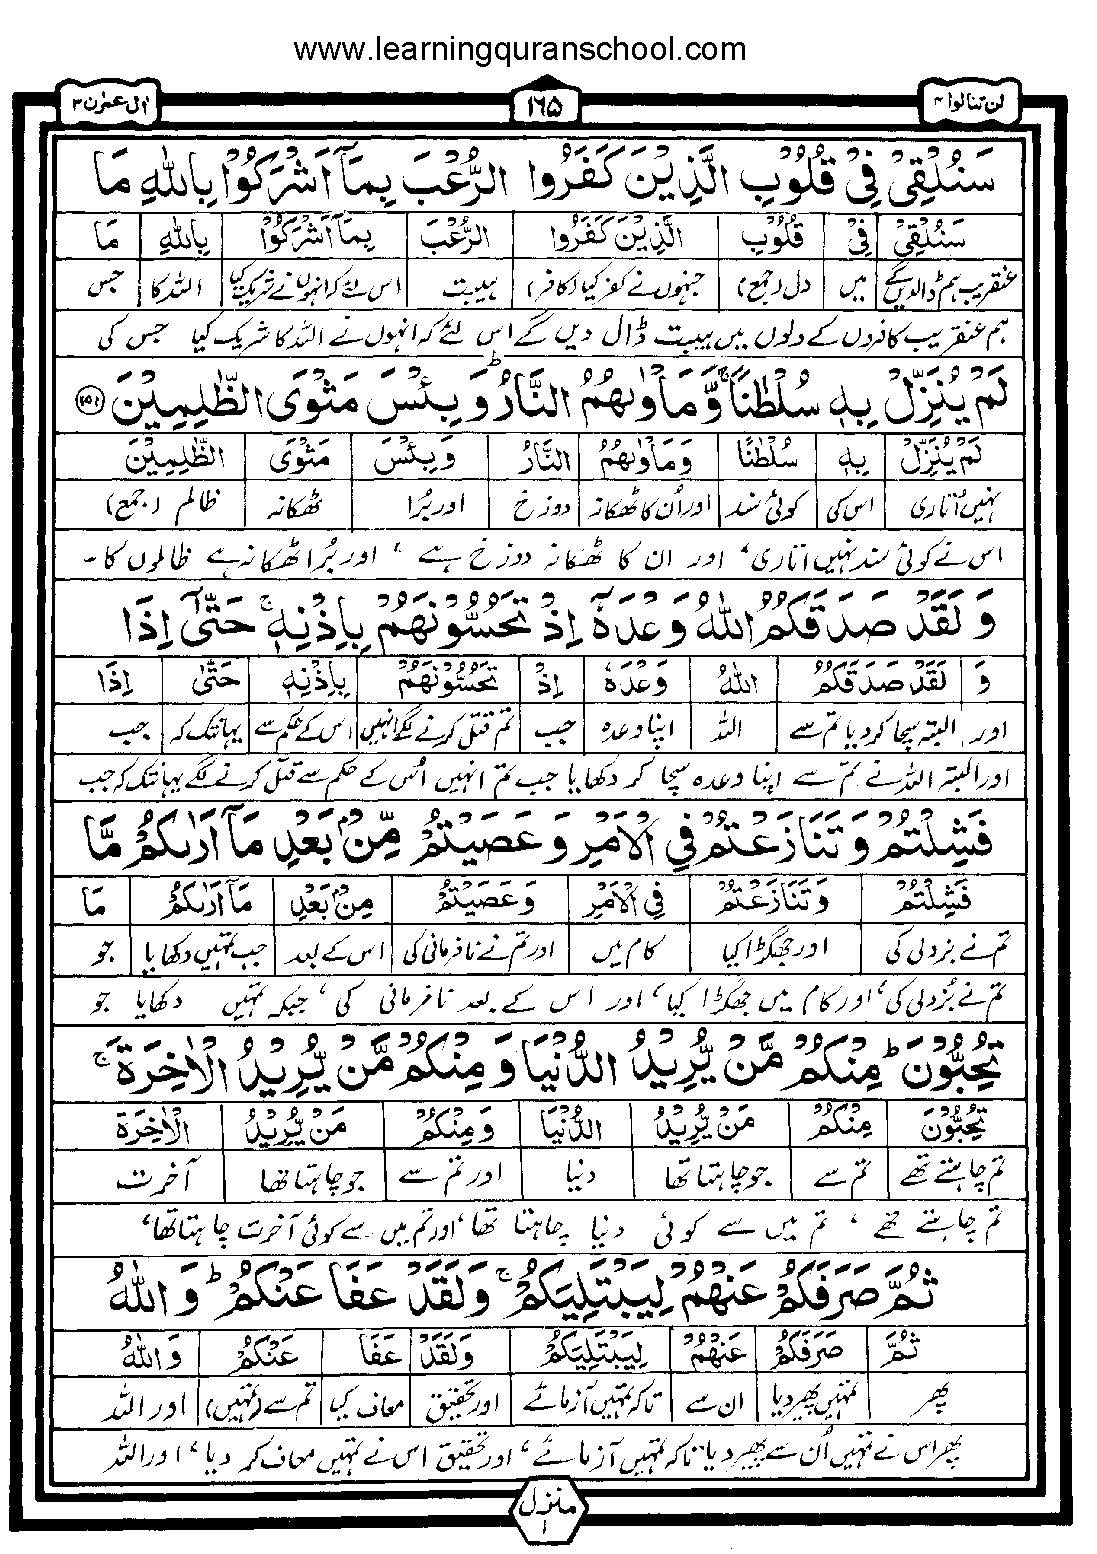 www.learningquranschool.com
لن تنالوا ۴ ۱۶۵ اٰل عمرٰن ۳
سَنُلْقِیْ فِیْ قُلُوْبِ الَّذِیْنَ كَفَرُوا الرُّعْبَ بِمَاۤ اَشْرَكُوْا بِاللّٰهِ مَا
سَنُلْقِیْ فِیْ قُلُوْبِ الَّذِیْنَ كَفَرُوا الرُّعْبَ بِمَاۤ اَشْرَكُوْا بِاللّٰهِ مَا
عنقریب ہم ڈالدیں گے میں دل (جمع) جنہوں نے کفر کیا (کافر) ہیبت اس لئے کہ انہوں نے شریک کیا اللہ کا جس
ہم عنقریب کافروں کے دلوں میں ہیبت ڈال دیں گے اس لئے کہ انہوں نے اللہ کا شریک کیا جس کی
لَمْ یُنَزِّلْ بِهٖ سُلْطٰنًا ۚ وَّمَاْوٰىهُمُ النَّارُ ؕ وَبِئْسَ مَثْوَی الظّٰلِمِیْنَ ﴿۱۵۱﴾
لَمْ یُنَزِّلْ بِهٖ سُلْطٰنًا وَمَاْوٰىهُمُ النَّارُ وَبِئْسَ مَثْوَی الظّٰلِمِیْنَ
نہیں اُتاری اس کی کوئی سند اور اُن کا ٹھکانہ دوزخ اور بُرا ٹھکانہ ظالم (جمع)
اس نے کوئی سند نہیں اتاری، اور ان کا ٹھکانہ دوزخ ہے، اور بُرا ٹھکانہ ہے ظالموں کا۔
وَلَقَدْ صَدَقَكُمُ اللّٰهُ وَعْدَهٗۤ اِذْ تَحُسُّوْنَهُمْ بِاِذْنِهٖ ۚ حَتّٰۤی اِذَا
وَ لَقَدْ صَدَقَكُمُ اللّٰهُ وَعْدَهٗ اِذْ تَحُسُّوْنَهُمْ بِاِذْنِهٖ حَتّٰی اِذَا
اور البتہ سچا کر دیا تم سے اللہ اپنا وعدہ جب تم قتل کرنے لگے انہیں اس کے حکم سے یہانتک کہ جب
اور البتہ اللہ نے تم سے اپنا وعدہ سچا کر دکھایا جب تم انہیں اُس کے حکم سے قتل کرنے لگے یہانتک کہ جب
فَشِلْتُمْ وَتَنَازَعْتُمْ فِی الْاَمْرِ وَعَصَیْتُمْ مِّنْۢ بَعْدِ مَاۤ اَرٰىكُمْ مَّا
فَشِلْتُمْ وَتَنَازَعْتُمْ فِی الْاَمْرِ وَعَصَیْتُمْ مِنْۢ بَعْدِ مَاۤ اَرٰىكُمْ مَا
تم نے بزدلی کی اور جھگڑا کیا کام میں اور تم نے نافرمانی کی اس کے بعد جب تمہیں دکھایا جو
تم نے بُزدلی کی، اور کام میں جھگڑا کیا، اور اس کے بعد نافرمانی کی، جبکہ تمہیں دکھایا جو
تُحِبُّوْنَ ؕ مِنْكُمْ مَّنْ یُّرِیْدُ الدُّنْیَا وَمِنْكُمْ مَّنْ یُّرِیْدُ الْاٰخِرَةَ ۚ
تُحِبُّوْنَ مِنْكُمْ مَنْ یُّرِیْدُ الدُّنْیَا وَمِنْكُمْ مَنْ یُّرِیْدُ الْاٰخِرَةَ
تم چاہتے تھے تم سے جو چاہتا تھا دنیا اور تم سے جو چاہتا تھا آخرت
تم چاہتے تھے، تم میں سے کوئی دنیا چاہتا تھا، اور تم میں سے کوئی آخرت چاہتا تھا،
ثُمَّ صَرَفَكُمْ عَنْهُمْ لِیَبْتَلِیَكُمْ ۚ وَلَقَدْ عَفَا عَنْكُمْ ؕ وَاللّٰهُ
ثُمَّ صَرَفَكُمْ عَنْهُمْ لِیَبْتَلِیَكُمْ وَلَقَدْ عَفَا عَنْكُمْ وَاللّٰهُ
پھر تمہیں پھیر دیا ان سے تاکہ تمہیں آزمائے اور تحقیق معاف کیا تم سے (تمہیں) اور اللہ
پھر اس نے تمہیں اُن سے پھیر دیا تاکہ تمہیں آزمائے، اور تحقیق اس نے تمہیں معاف کر دیا، اور اللہ
منزل ۱